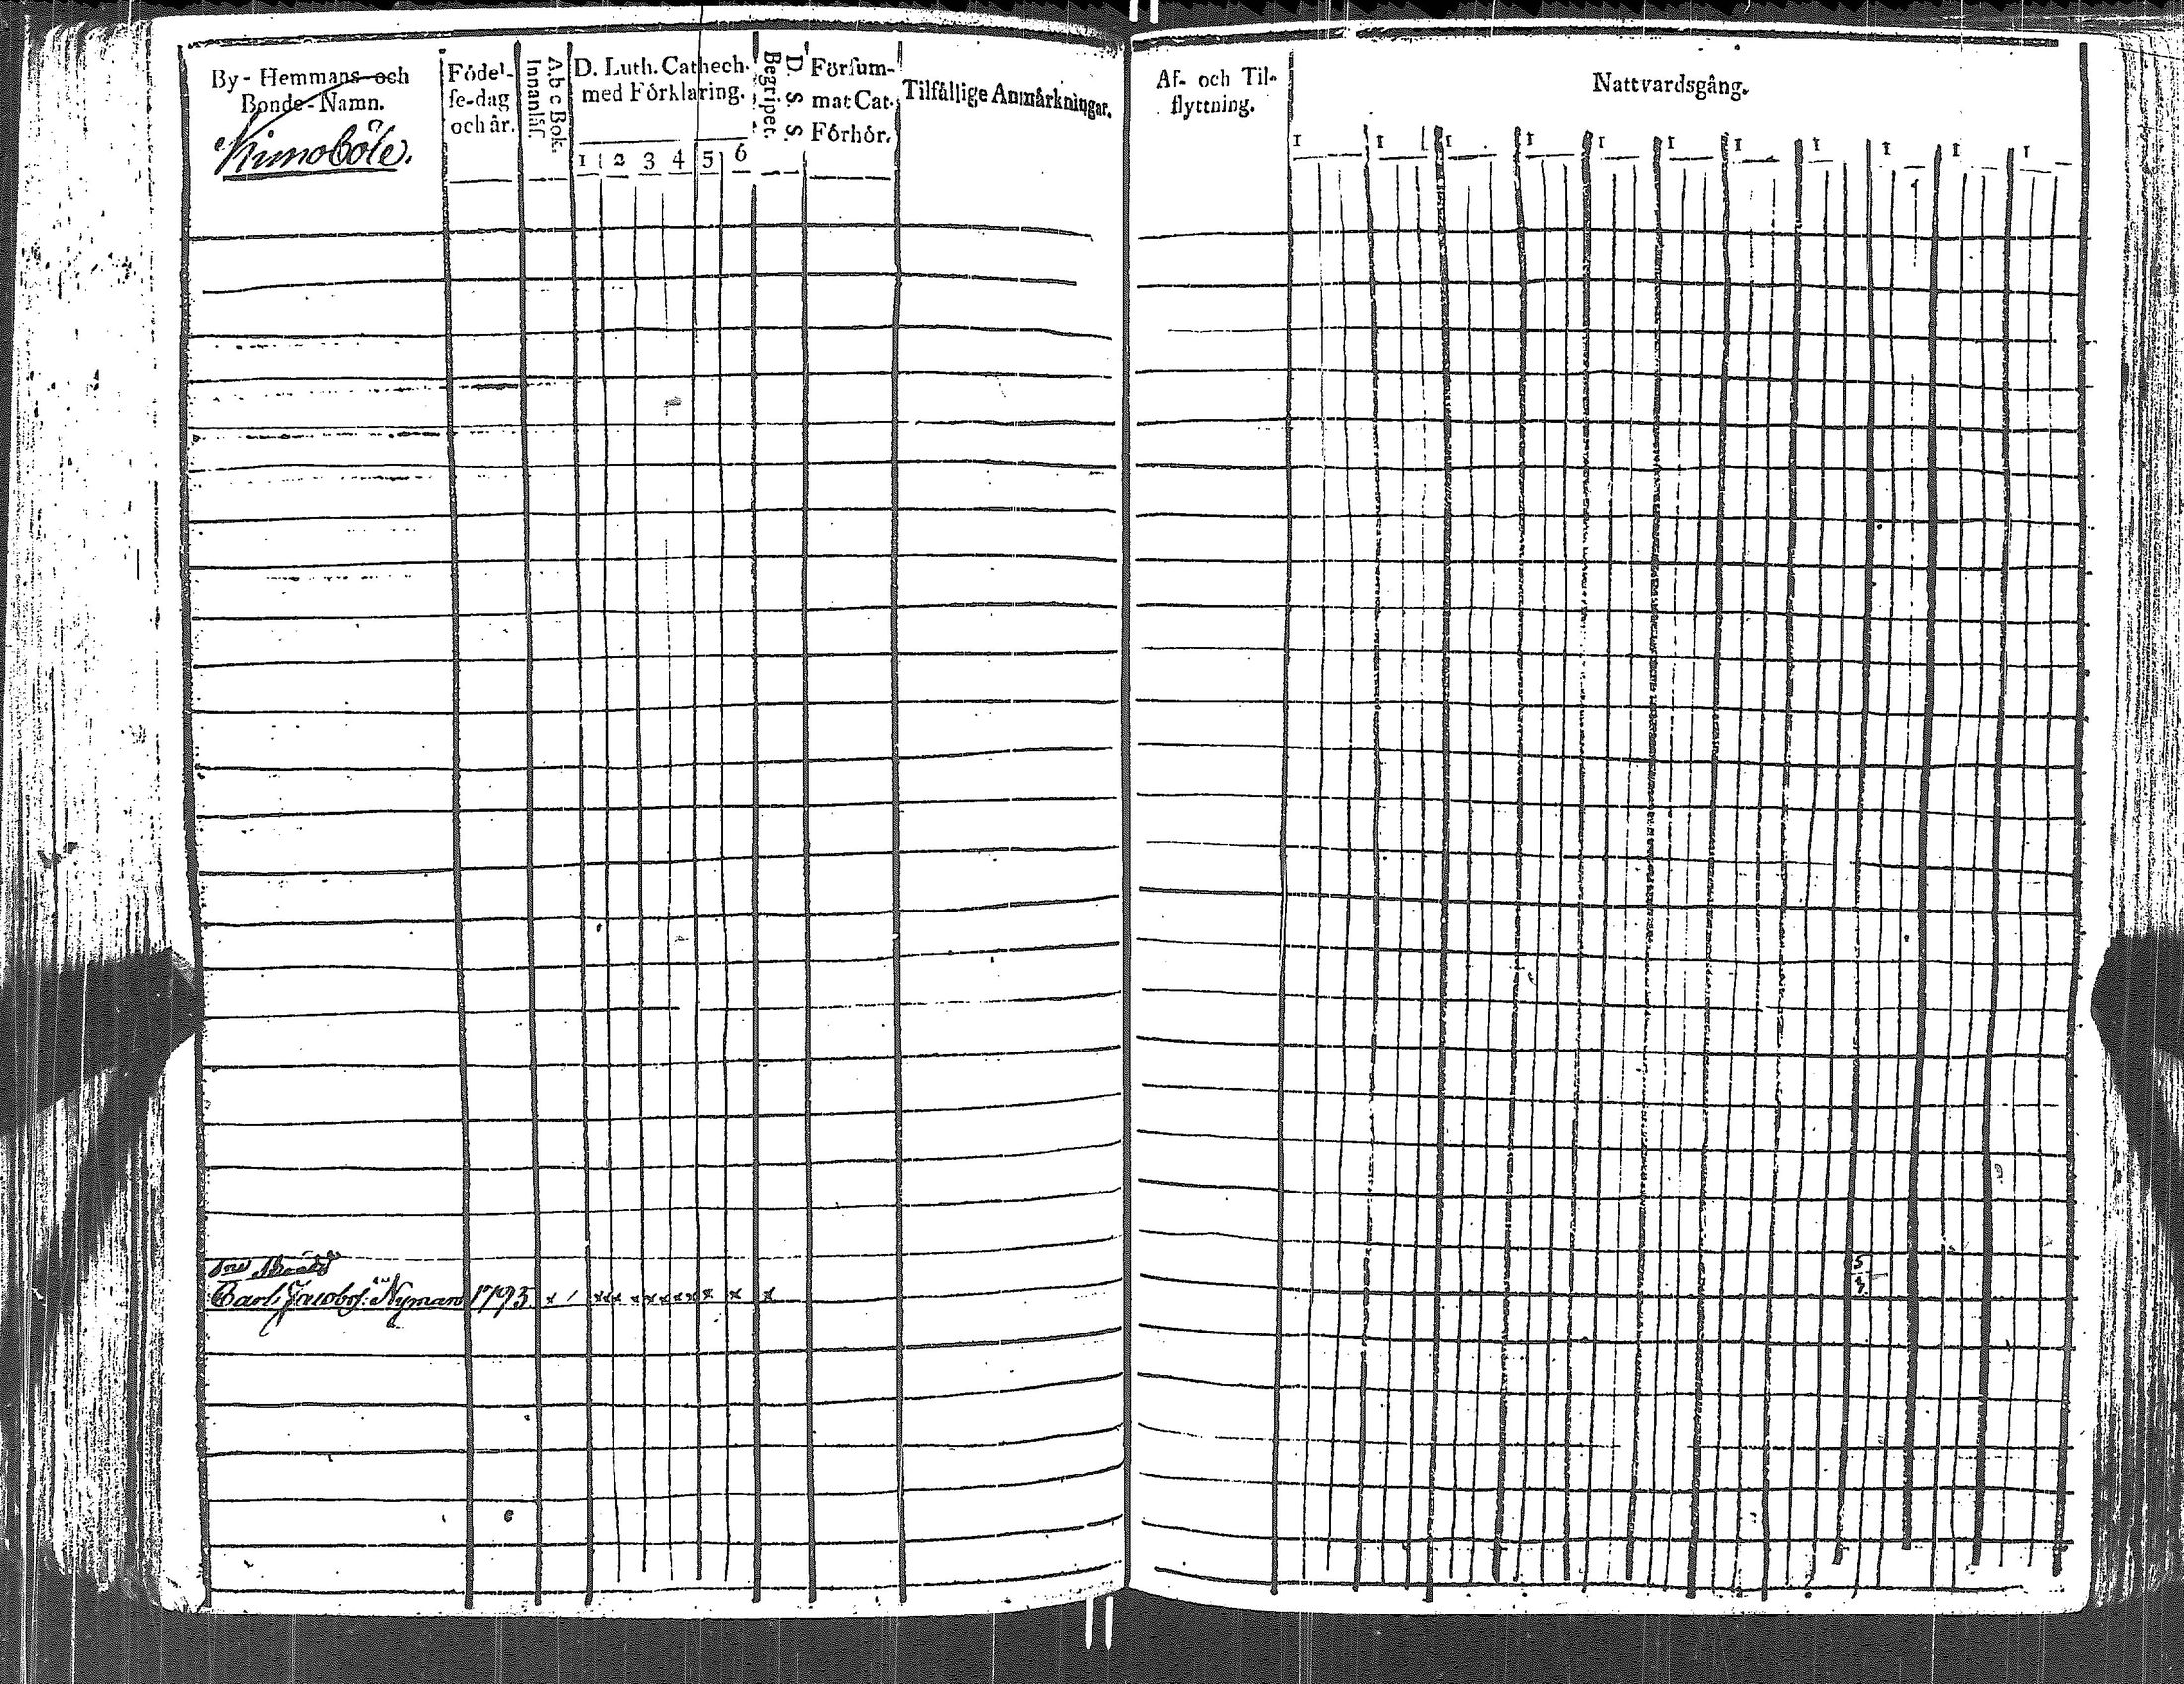 By- Hemmans- och
Bonde-Namn.
Kimoböle.
Födel-
se-dag
och år.
A b c Bok.
Innanläs.
D. Luth. Cathech.
med Förklaring.
1 2 3 4 5 6
D. S. S.
Begriper.
Försum-
mat Cat.
Förhör.
Tilfällige Anmärkningar.
Carl Jacobs. Nyman 1793
Af- och Til-
flyttning.
Nattvardsgång.
1 1 1 1 1 1 1 1 1 1 1
5
4